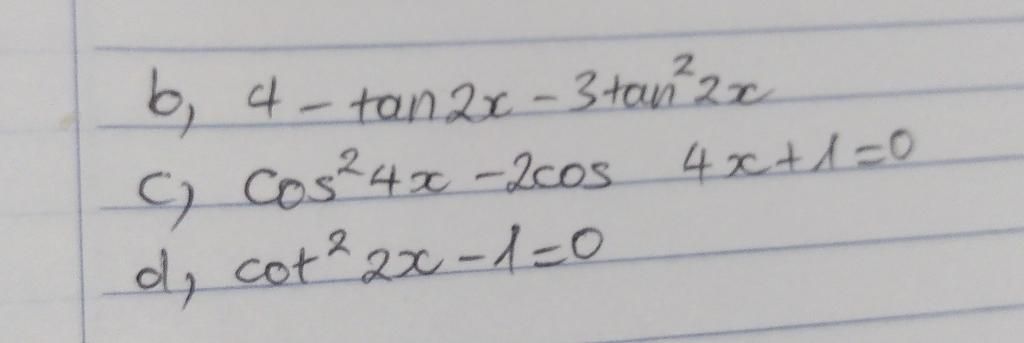 b, 4 - tan2x - 3tan²2x
c, cos²4x - 2cos 4x + 1 = 0
d, cot²2x - 1 = 0